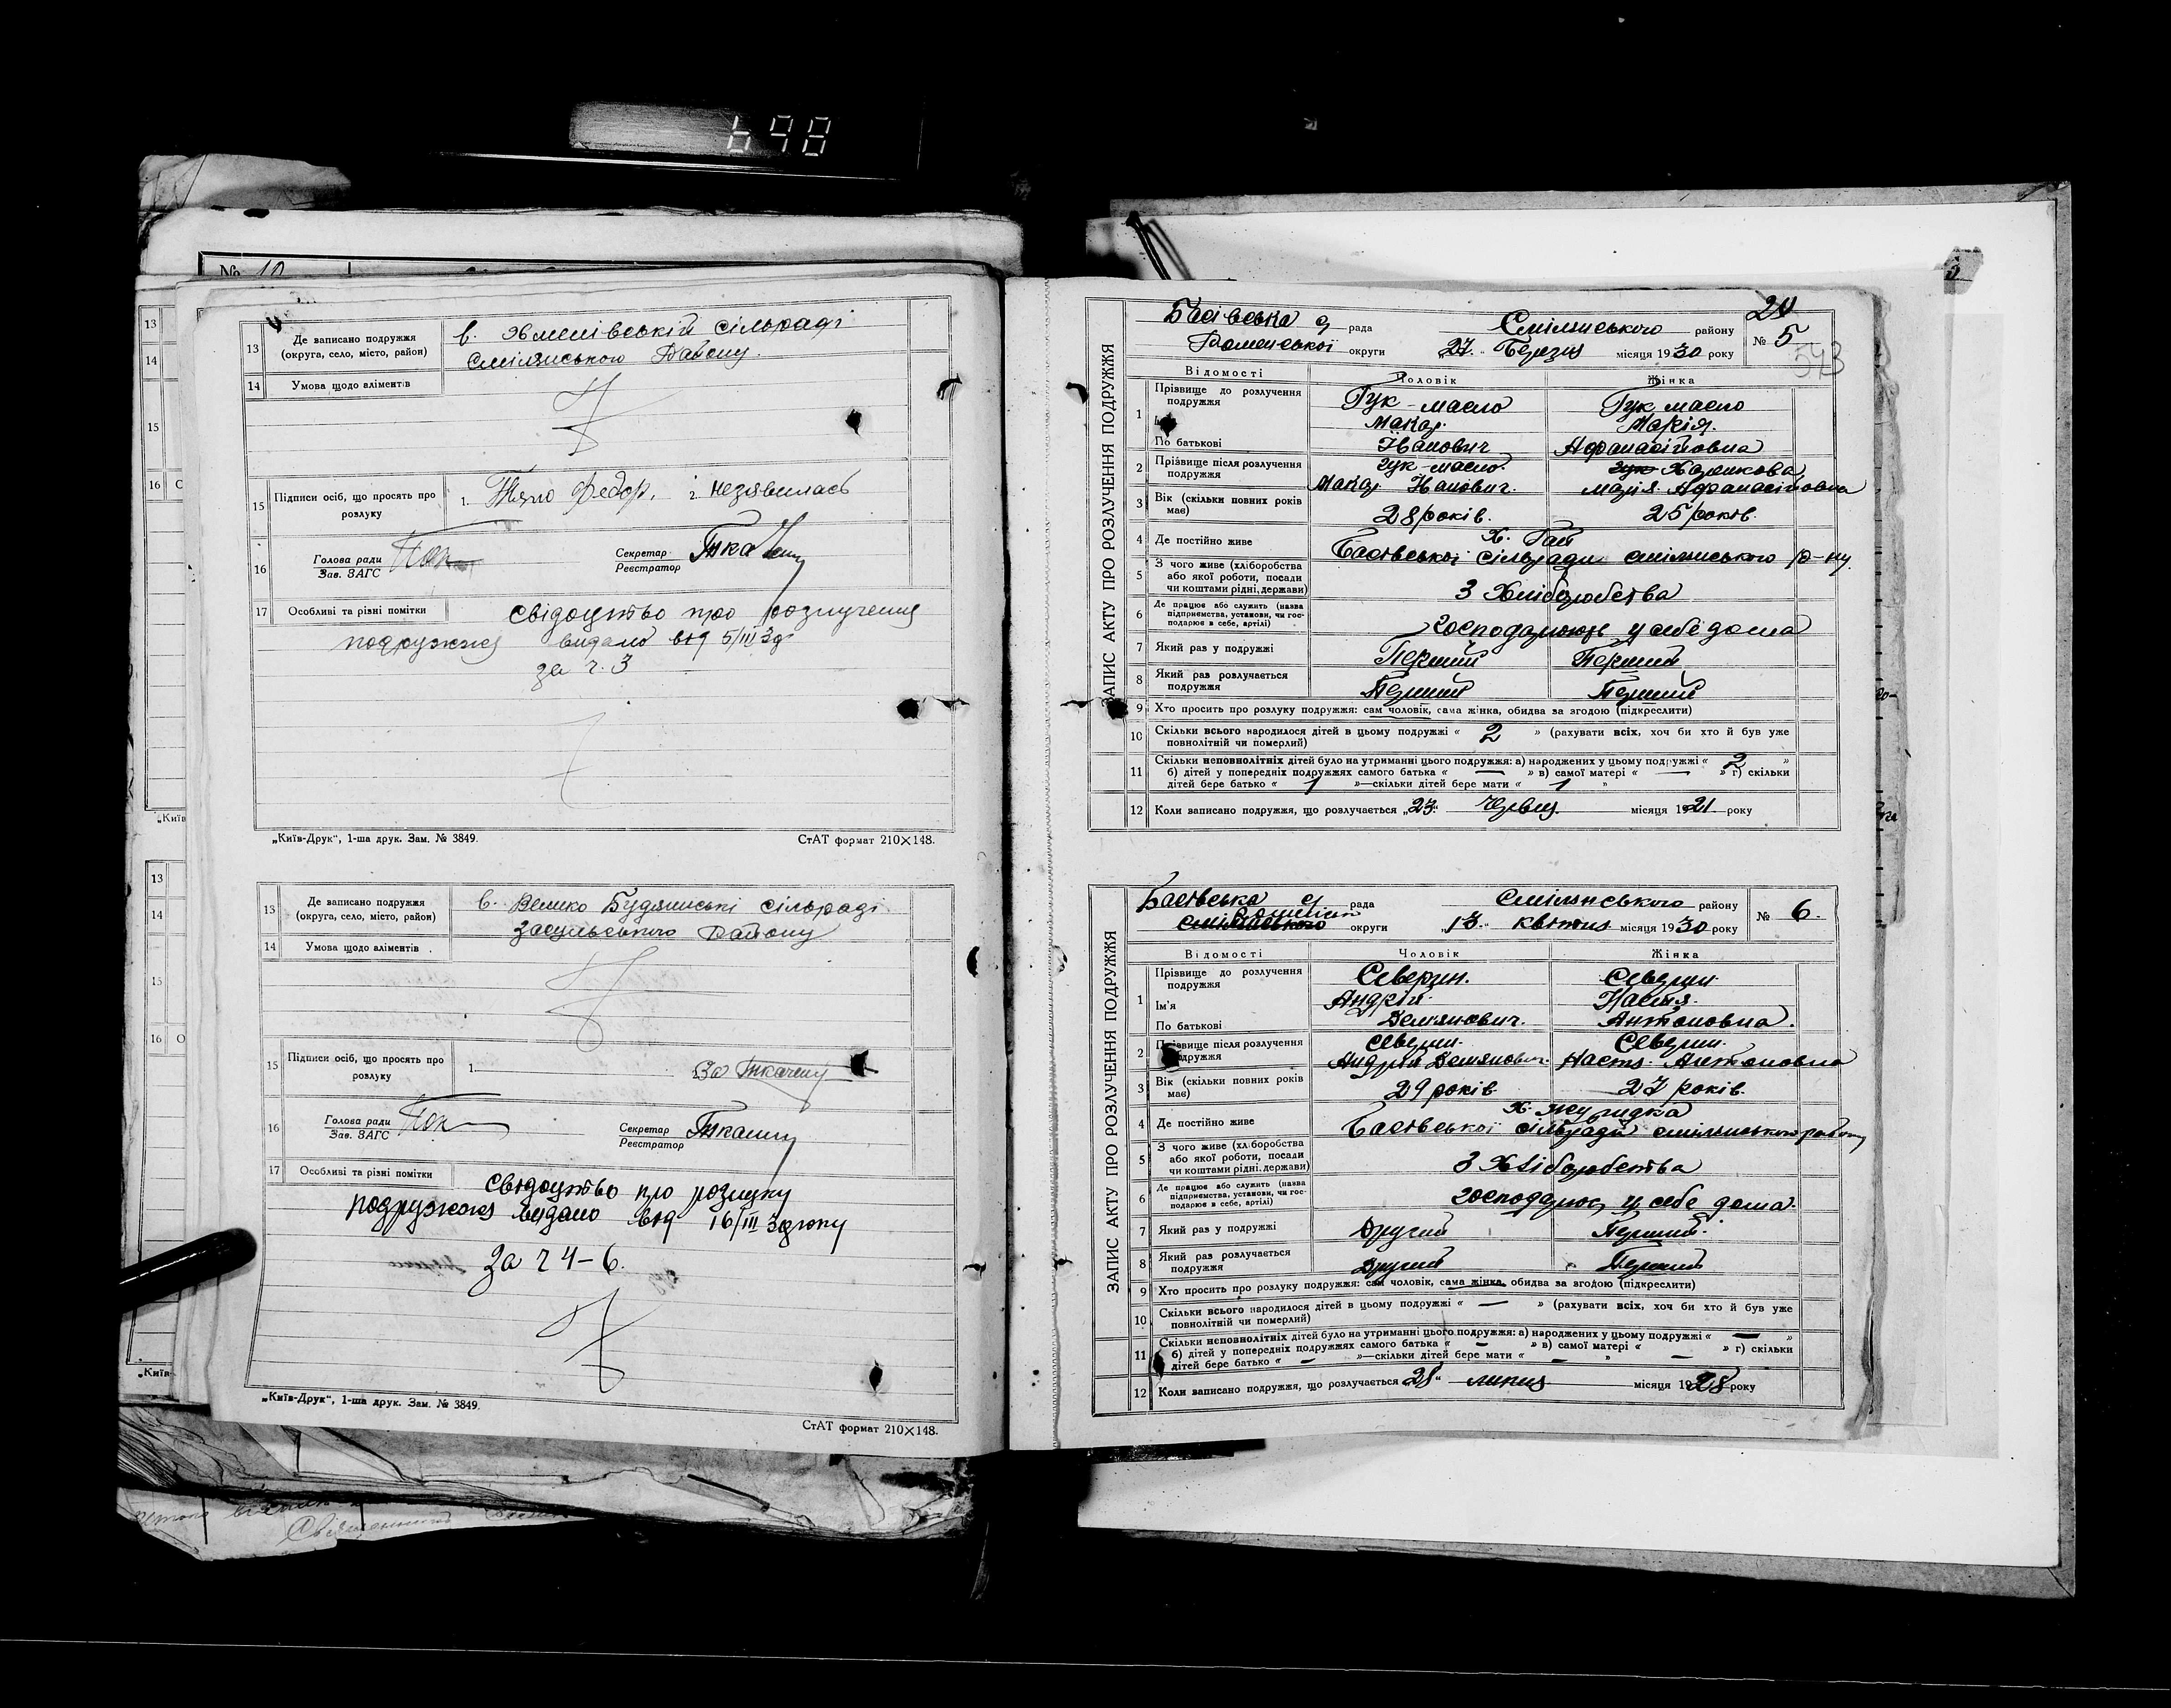 698
№ 10
13
14
15
16 С
„Київ
13
14
15
16 О
„Київ-
13 Де записано подружжя (округа, село, місто, район)
в. Хменівській сільраді
Смілянського Району.
14 Умова щодо аліментів
15 Підписи осіб, що просять про розлуку
1. Федор. 2. незявилась
16 Голова ради
Зав. ЗАГС
Секретар
Реєстратор
17 Особливі та різні помітки
свідоцтво про розлучения
подружжя видано від 5/III 30
за ч. 3
„Київ-Друк“, 1-ша друк. Зам. № 3849.
СтАТ формат 210×148.
13 Де записано подружжя (округа, село, місто, район)
в. Велико Будянські сільраді
Засульського Району
14 Умова щодо аліментів
15 Підписи осіб, що просять про розлуку
1. За
16 Голова ради
Зав. ЗАГС
Секретар
Реєстратор
17 Особливі та різні помітки
свідоцтво про розлуку
подружжя видано від 16/III 30 року
за ч 4-6.
„Київ-Друк“, 1-ша друк. Зам. № 3849.
СтАТ формат 210×148.
ЗАПИС АКТУ ПРО РОЗЛУЧЕННЯ ПОДРУЖЖЯ
Басівська с/ рада Смілянського району
Роменської округи „27.“ Березня місяця 1930 року
№ 5
543
Відомості Чоловік Жінка
1 Прізвище до розлучення подружжя Гук-масло Гук масло
Макар. Марія.
По батькові Іванович Афанасійовна
2 Прізвище після розлучення подружжя Гук-масло. Гук Харчкова
Макар Іванович. Марія Афанасійовна
3 Вік (скільки повних років має) 28 років. 25 років.
4 Де постійно живе Х. Гай
Басівської сільради смілянського р-ну.
5 З чого живе (хліборобства або якої роботи, посади чи коштами рідні, держави)
З Хліборобства
6 Де працює або служить (назва підприємства, установи, чи господарює в себе, артілі)
господарюють у себе дома
7 Який раз у подружжі Перший Перший
8 Який раз розлучається подружжя Перший Перший
9 Хто просить про розлуку подружжя: сам чоловік, сама жінка, обидва за згодою (підкреслити)
10 Скільки всього народилося дітей в цьому подружжі « 2 » (рахувати всіх, хоч би хто й був уже
повнолітній чи померлий)
11 Скільки неповнолітніх дітей було на утриманні цього подружжя: а) народжених у цьому подружжі « 2 »
б) дітей у попередніх подружжях самого батька « — » в) самої матері « — » г) скільки
дітей бере батько « 1 »—скільки дітей бере мати « 1 »
12 Коли записано подружжя, що розлучається „23.“ Червня. місяця 1921 року
ЗАПИС АКТУ ПРО РОЗЛУЧЕННЯ ПОДРУЖЖЯ
Басівська с/ рада Смілянського району
Смілянського округи „13.“ квітня місяця 1930 року
№ 6.
Відомості Чоловік Жінка
1 Прізвище до розлучення подружжя Северин. Северин
Ім'я Андрій. Настя.
По батькові Демянович. Антоновна.
2 Прізвище після розлучення подружжя Северин. Северин.
Андрій Демянович. Настя Антоновна
3 Вік (скільки повних років має) 29 років 27 років.
4 Де постійно живе Х. Журидка
Басівської сільради смілянського району
5 З чого живе (хліборобства або якої роботи, посади чи коштами рідні, держави)
З Хліборобства
6 Де працює або служить (назва підприємства, установи, чи господарює в себе, артілі)
господарює у себе дома.
7 Який раз у подружжі Другий Перший.
8 Який раз розлучається подружжя Другий Перший
9 Хто просить про розлуку подружжя: сам чоловік, сама жінка, обидва за згодою (підкреслити)
10 Скільки всього народилося дітей в цьому подружжі « — » (рахувати всіх, хоч би хто й був уже
повнолітній чи померлий)
11 Скільки неповнолітніх дітей було на утриманні цього подружжя: а) народжених у цьому подружжі « — »
б) дітей у попередніх подружжях самого батька « — » в) самої матері « — » г) скільки
дітей бере батько « — »—скільки дітей бере мати « — »
12 Коли записано подружжя, що розлучається 28“ липня місяця 1928 року